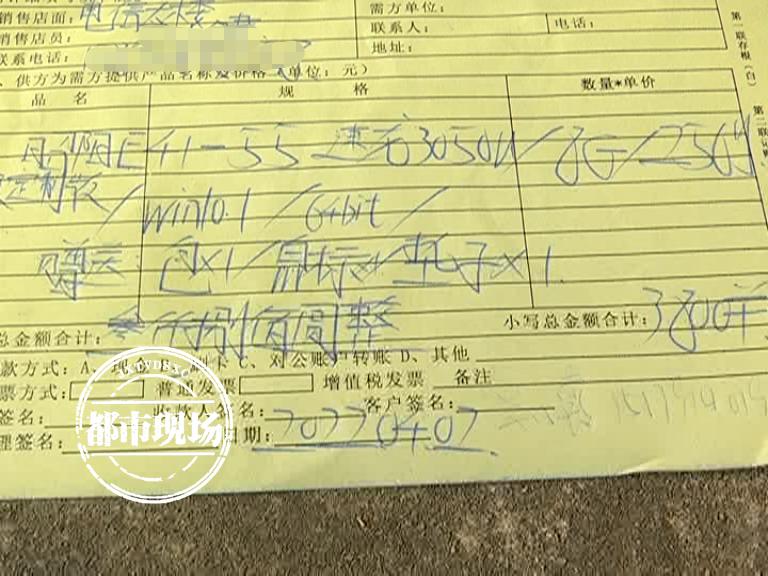 销售店面: 电信大楼
需方单位:
销售店员:
联系人: 电话:
联系电话:
地址:
、供方为需方提供产品名称及价格(单位:元)
品 名 规 格 数量*单价
E41-55 3050U/8G/256G
定制版/win10.1/64bit/
包x1/鼠标x1/垫子x1.
总金额合计: 叁仟捌佰圆整 小写总金额合计: 3800
款方式: A、现金 刷卡 C、对公账户转账 D、其他
票方式: 普通发票 增值税发票 备注
签名: 收款人签名: 客户签名:
理签名: 日期: 20220407
第一联存根(白)
第二联
都市现场